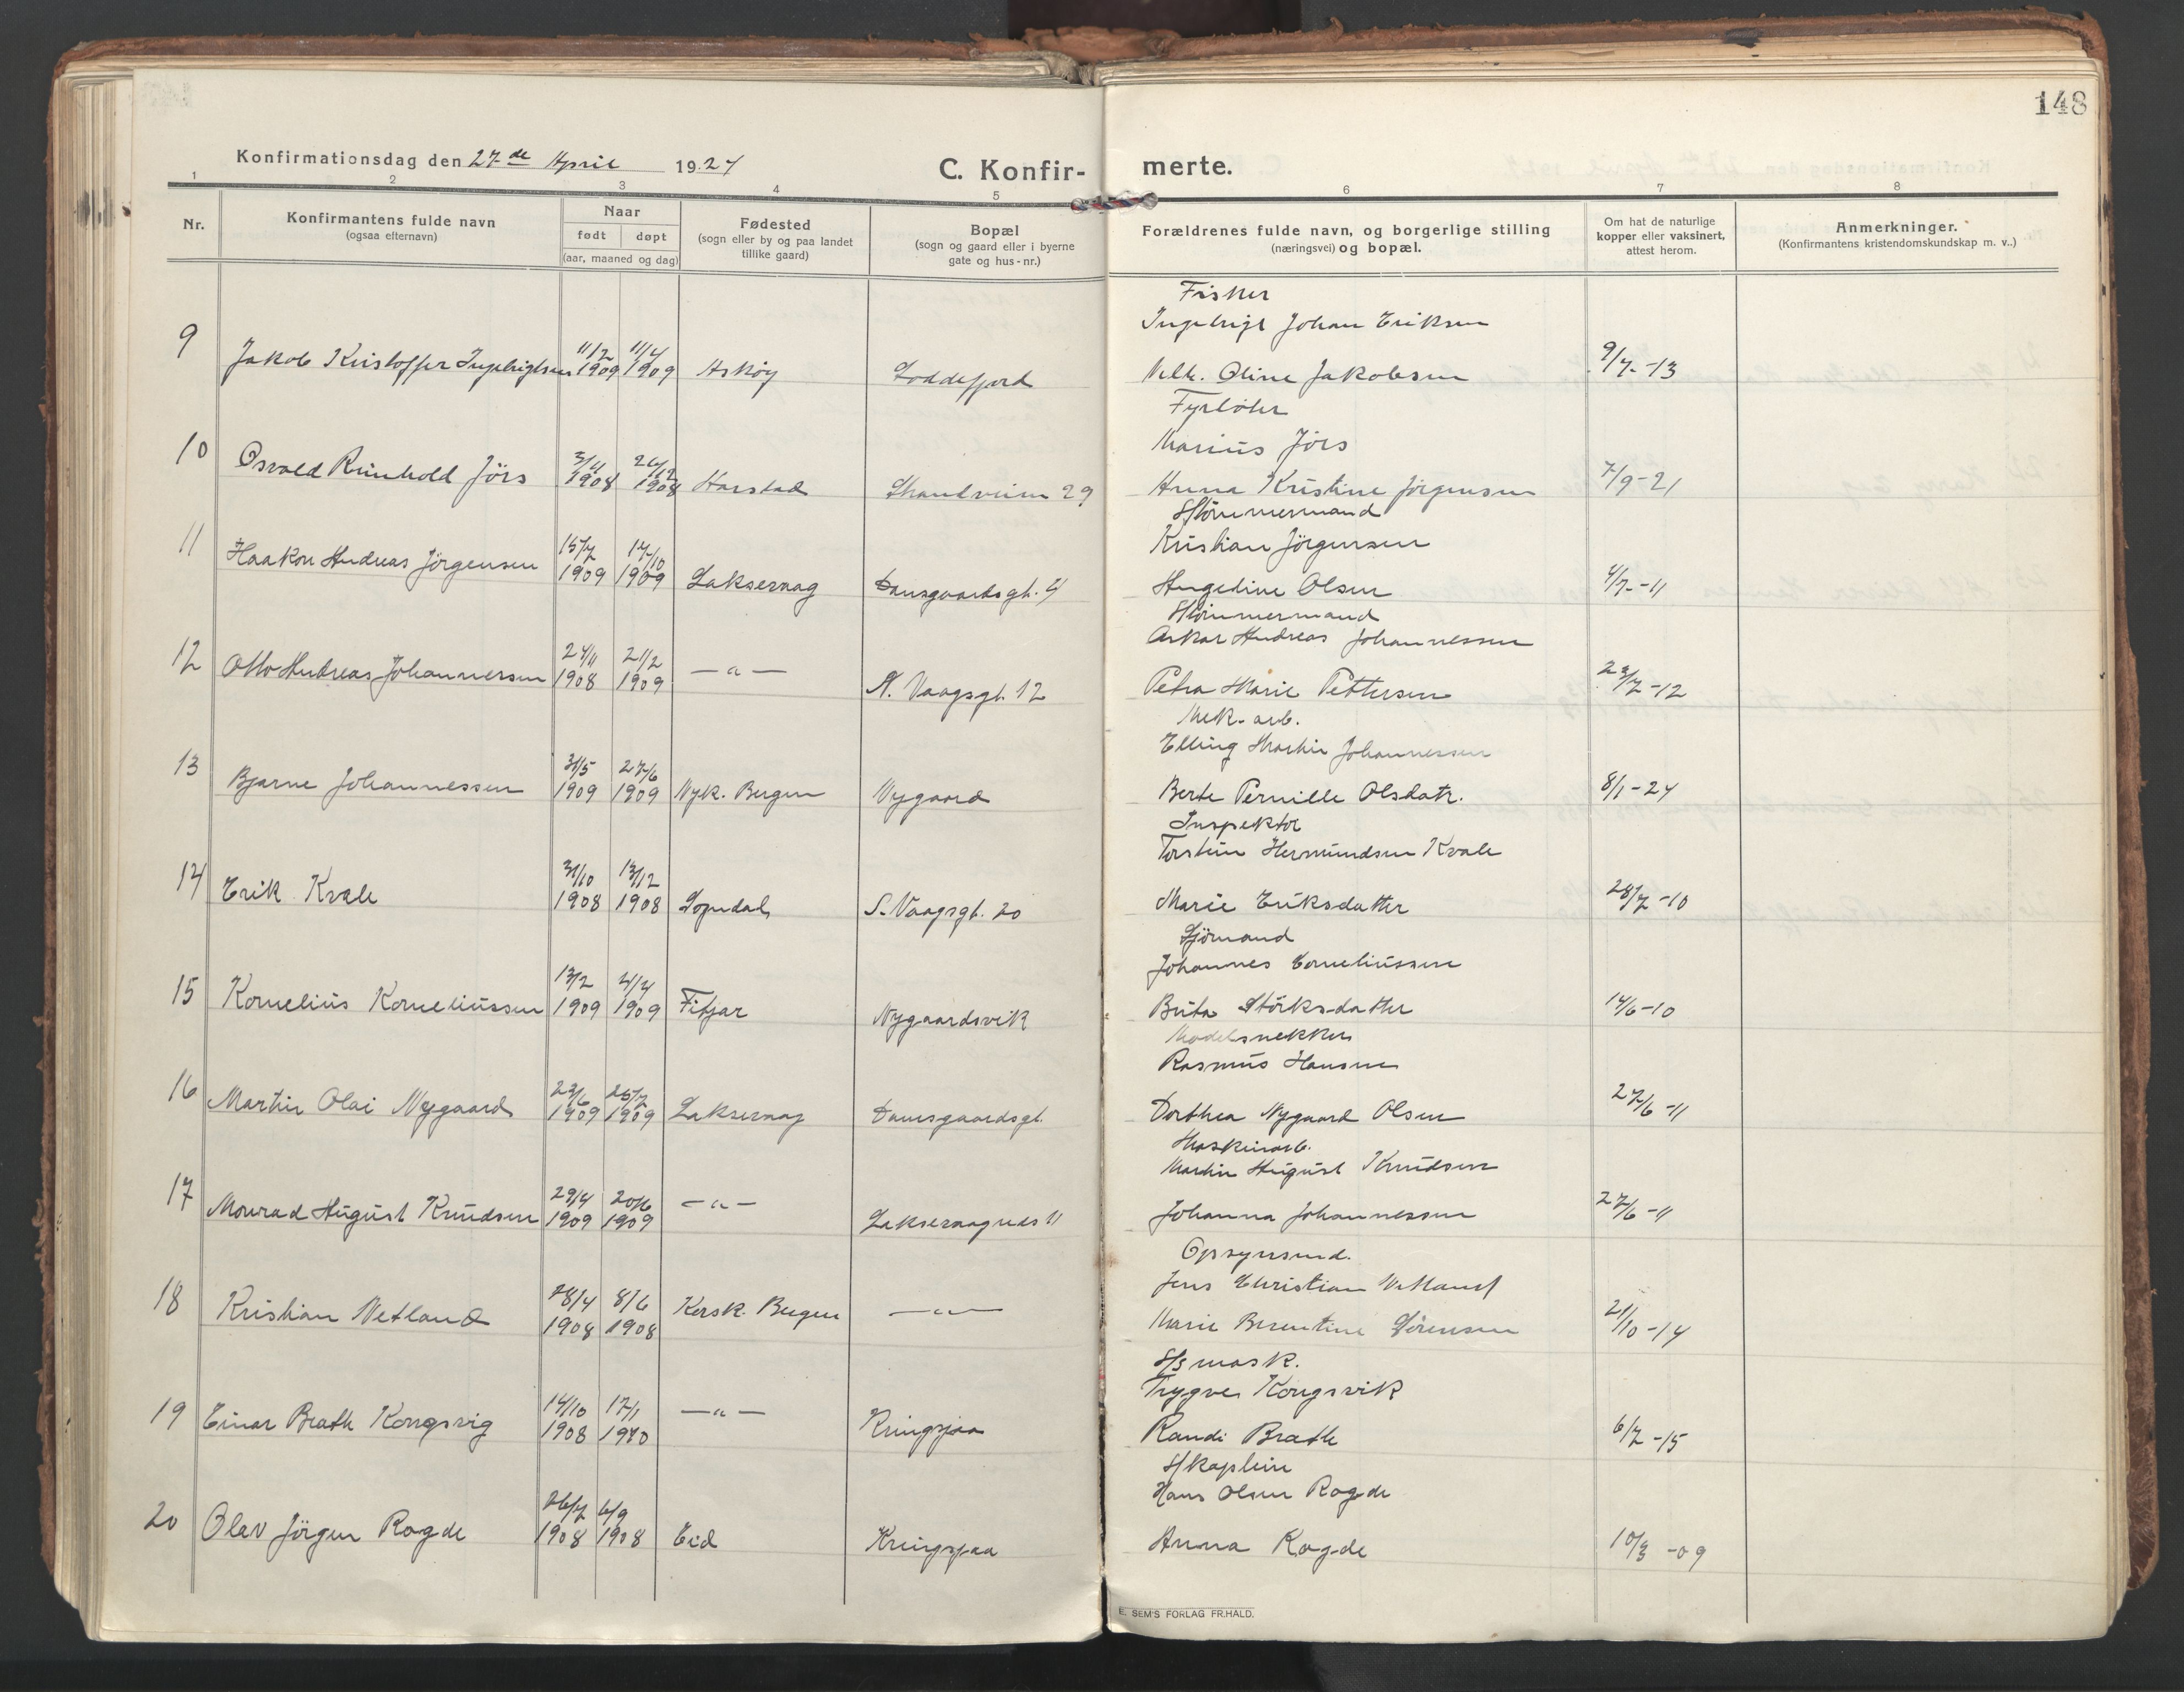 148
Konfirmationsdag den 27-de April 1924
C. Konfir-merte.
1 2 3 4 5 6 7 8
Nr.
Konfirmantens fulde navn
(ogsaa efternavn)
Naar
født døpt
(aar, maaned og dag)
Fødested
(sogn eller by og paa landet
tillike gaard)
Bopæl
(sogn og gaard eller i byerne
gate og hus-nr.)
Forældrenes fulde navn, og borgerlige stilling
(næringsvei) og bopæl.
Om hat de naturlige
kopper eller vaksinert,
attest herom.
Anmerkninger.
(Konfirmantens kristendomskundskap m. v..)
Fisker
Ingebrigt Johan Eriksen
9 Jakob Kristoffer Ingebrigtsen 11/2 1909 11/4 1909 Askøy Loddefjord
Oline Jakobsen 9/7-13
Fyrbøter
Marius Jörs
10 Osvald Reinhold Jörs 3/11 1908 26/12 1908 Harstad Strandveien 29
Anna Kristine Jörgensen 7/9-21
Tömmermand
Kristian Jörgensen
11 Haakon Andreas Jörgensen 15/7 1909 17/10 1909 Laksevaag Damsgaardsgt. 4
Angedine Olsen 4/7-11
Tömmermand
Oskar Andreas Johannessen
12 Otto Andreas Johannessen 24/11 1908 21/2 1909 —"— N. Vaagsgt. 12
Petra Marie Pettersen 23/7-12
Mek. arb.
Elling Martin Johannessen
13 Bjarne Johannessen 31/5 1909 27/6 1909 Nyk. Bergen Nygaard
Berte Pernille Olsdatr. 8/1-24
Inspektör
Torstein Hermundsen Kvale
14 Erik Kvale 31/10 1908 13/12 1908 Sogndal S. Vaagsgt. 20
Marie Eriksdatter 28/7-10
Sjömand
Johannes Corneliussen
15 Kornelius Korneliussen 13/2 1909 4/4 1909 Fitjar Nygaardsvik
Brita Störksdatter 14/6-10
Modelsnekker
Rasmus Hansen
16 Martin Olai Nygaard 23/6 1909 25/7 1909 Laksevaag Damsgaardsgt.
Dorthea Nygaard Olsen 27/6-11
Maskinarb.
Martin August Knudsen
17 Monrad August Knudsen 29/4 1909 20/6 1909 —"— Laksevaagneds 11
Johanna Johannessen 27/6-11
Opsynsmd.
Jens Christian Vetland
18 Kristian Vetland 28/4 1908 8/6 1908 Korsk. Bergen —"—
Marie Berentine Sörensen 21/10-14
S/s mask.
Trygve Kongsvik
19 Einar Brath Kongsvig 14/10 1908 17/1 1910 —"— Kringsjaa
Randi Brath 6/7-15
Skaptein
Hans Olsen Rogde
20 Olav Jörgen Rogde 26/7 1908 6/9 1908 Eid Kringsjaa
Anna Rogde 10/3-09
E. SEM'S FORLAG FR.HALD.